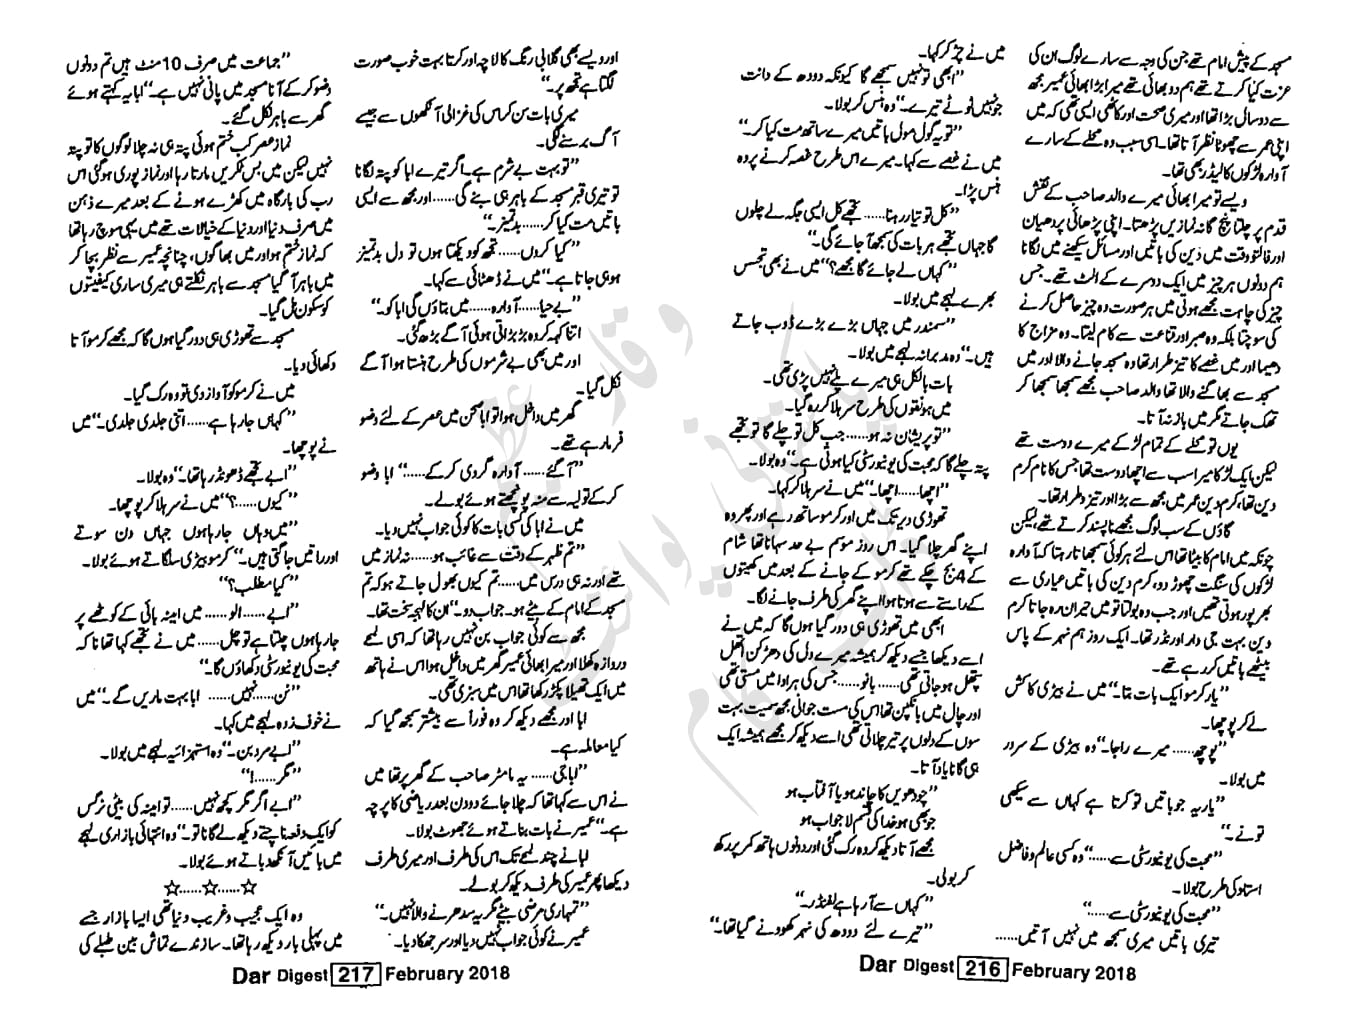 مسجد کے پیش امام تھے جن کی وجہ سے سارے لوگ ان کی
عزت کیا کرتے تھے ہم دو بھائی تھے میرا بڑا بھائی عمیر مجھ
سے دو سال بڑا تھا اور میری صحت اور کاٹھی ایسی تھی کہ میں
اپنی عمر سے چھوٹا نظر آتا تھا۔ اسی سبب وہ محلے کے سارے
آوارہ لڑکوں کا لیڈر بھی تھا۔
ویسے تو میرا بھائی میرے والد صاحب کے نقش
قدم پر چلتا پنج گانہ نمازیں پڑھتا۔ اپنی پڑھائی پر دھیان
اور فالتو وقت میں دین کی باتیں اور مسائل سیکھنے میں لگاتا
ہم دونوں ہر چیز میں ایک دوسرے کے الٹ تھے۔ جس
چیز کی چاہت مجھے ہوتی میں ہر صورت وہ چیز حاصل کرنے
کی سوچتا بلکہ وہ صبر اور قناعت سے کام لیتا۔ وہ مزاج کا
دھیما اور میں غصے کا تیز طرار تھا وہ مسجد جانے والا اور میں
مسجد سے بھاگنے والا تھا والد صاحب مجھے سمجھا سمجھا کر
تھک جاتے مگر میں باز نہ آتا۔
یوں تو محلے کے تمام لڑکے میرے دوست تھے
لیکن ایک لڑکا میرا سب سے اچھا دوست تھا جس کا نام کرم
دین تھا، کرم دین عمر میں مجھ سے بڑا اور تیز و طرار تھا۔
گاؤں کے سب لوگ مجھے ناپسند کرتے تھے، لیکن
چونکہ میں امام کا بیٹا تھا اس لئے ہر کوئی سمجھاتا رہتا کہ آوارہ
لڑکوں کی سنگت چھوڑ دو، کرم دین کی باتیں عیاری سے
بھرپور ہوتی تھیں اور جب وہ بولتا تو میں حیران رہ جاتا کرم
دین بہت جی دار اور نڈر تھا۔ ایک روز ہم نہر کے پاس
بیٹھے باتیں کر رہے تھے۔
”یار کرمو ایک بات بتا۔“ میں نے بیڑی کا کش
لے کر پوچھا۔
”پوچھ...... میرے راجا۔“ وہ بیڑی کے سرور
میں بولا۔
”یار یہ جو باتیں تو کرتا ہے کہاں سے سیکھی
تونے۔“
”محبت کی یونیورسٹی سے......“ وہ کسی عالم و فاضل
استاد کی طرح بولا۔
”محبت کی یونیورسٹی سے......“
تیری باتیں میری سمجھ میں نہیں آتیں......
میں نے چڑ کر کہا۔
”ابھی تو نہیں سمجھے گا کیونکہ دودھ کے دانت
جو نہیں ٹوٹے تیرے۔“ وہ ہنس کر بولا۔
”تو یہ گول مول باتیں میرے ساتھ مت کیا کر۔“
میں نے غصے سے کہا۔ میرے اس طرح غصہ کرنے پر وہ
ہنس پڑا۔
”کل تو تیار رہنا...... تجھے کل ایسی جگہ لے چلوں
گا جہاں تجھے ہر بات کی سمجھ آ جائے گی۔“
”کہاں لے جائے گا مجھے؟“ میں نے بھی تجسس
بھرے لہجے میں بولا۔
”سمندر میں جہاں بڑے بڑے ڈوب جاتے
ہیں۔“ وہ مدبرانہ لہجے میں بولا۔
بات بالکل ہی میرے پلے نہیں پڑی تھی۔
میں ہونقوں کی طرح سر ہلا کر رہ گیا۔
”تو پریشان نہ ہو...... جب کل تو چلے گا تو تجھے
پتہ چلے گا کہ محبت کی یونیورسٹی کیا ہوتی ہے۔“ وہ بولا۔
”اچھا...... اچھا۔“ میں نے سر ہلا کر کہا۔
تھوڑی دیر تک میں اور کرمو ساتھ رہے اور پھر وہ
اپنے گھر چلا گیا۔ اس روز موسم بے حد سہانا تھا شام
کے 4 بج چکے تھے کرمو کے جانے کے بعد میں کھیتوں
کے راستے سے ہوتا ہوا اپنے گھر کی طرف جانے لگا۔
ابھی میں تھوڑی ہی دور گیا ہوں گا کہ میں نے
اسے دیکھا جسے دیکھ کر ہمیشہ میرے دل کی دھڑکن اتھل
پتھل ہو جاتی تھی...... بانو...... جس کی ہر ادا میں مستی تھی
اور چال میں بانکپن تھا اس کی مست جوانی مجھ سمیت بہت
سوں کے دلوں پر تیر چلاتی تھی اسے دیکھ کر مجھے ہمیشہ ایک
ہی گانا یاد آتا۔
”چودھویں کا چاند ہو یا آفتاب ہو
جو بھی ہو خدا کی قسم لا جواب ہو
مجھے آتا دیکھ کر وہ رک گئی اور دونوں ہاتھ کمر پر رکھ
کر بولی۔
”کہاں سے آ رہا ہے لفنڈر۔“
”تیرے لئے دودھ کی نہر کھودنے گیا تھا۔“
Dar Digest 216 February 2018
اور ویسے بھی گلابی رنگ کا لاچہ اور کرتا بہت خوب صورت
لگتا ہے تجھ پر۔“
میری بات سن کر اس کی غزالی آنکھوں سے جیسے
آگ برسنے لگی۔
”تو بہت بے شرم ہے۔ اگر تیرے ابا کو پتہ لگاتا
تو تیری قبر مسجد کے باہر ہی بنے گی...... اور مجھ سے ایسی
باتیں مت کیا کر...... بدتمیز۔“
”کیا کروں...... تجھ کو دیکھتا ہوں تو دل بدتمیز
ہو ہی جاتا ہے۔“ میں نے ڈھٹائی سے کہا۔
”بے حیا...... آوارہ...... میں بتاؤں گی ابا کو۔“
اتنا کہہ کر وہ بڑبڑاتی ہوئی آگے بڑھ گئی۔
اور میں بھی بے شرموں کی طرح ہنستا ہوا آگے
نکل گیا۔
گھر میں داخل ہوا تو ابا صحن میں عصر کے لئے وضو
فرما رہے تھے۔
”آ گئے...... آوارہ گردی کر کے......“ ابا وضو
کر کے تولیہ سے منہ پونچھتے ہوئے بولے۔
میں نے ابا کی کسی بات کا کوئی جواب نہیں دیا۔
”تم ظہر کے وقت سے غائب ہو...... نہ نماز میں
تھے اور نہ ہی درس میں...... تم کیوں بھول جاتے ہو کہ تم
مسجد کے امام کے بیٹے ہو۔ جواب دو۔“ ان کا لہجہ سخت تھا۔
مجھ سے کوئی جواب بن نہیں رہا تھا کہ اسی لمحے
دروازہ کھلا اور میرا بھائی عمیر گھر میں داخل ہوا اس نے ہاتھ
میں ایک تھیلا پکڑ رکھا تھا اس میں سبزی تھی۔
ابا اور مجھے دیکھ کر وہ فوراً سے بیشتر سمجھ گیا کہ
کیا معاملہ ہے۔
”ابا جی...... یہ ماسٹر صاحب کے گھر پر تھا میں
نے اس سے کہا تھا کہ چلا جائے دو دن بعد ریاضی کا پرچہ
ہے۔“ عمیر نے بات بناتے ہوئے جھوٹ بولا۔
ابا نے چند لمحے تک اس کی طرف اور میری طرف
دیکھا پھر عمیر کی طرف دیکھ کر بولے۔
”تمہاری مرضی بیٹے مگر یہ سدھرنے والا نہیں۔“
عمیر نے کوئی جواب نہیں دیا اور سر جھکا دیا۔
”جماعت میں صرف 10 منٹ ہیں تم دونوں
وضو کر کے آنا مسجد میں پانی نہیں ہے۔“ ابا یہ کہتے ہوئے
گھر سے باہر نکل گئے۔
نماز عصر کب ختم ہوئی پتہ ہی نہ چلا لوگوں کا تو پتہ
نہیں لیکن میں بس ٹکریں مارتا رہا اور نماز پوری ہو گئی اس
رب کی بارگاہ میں کھڑے ہونے کے بعد میرے ذہن
میں صرف دنیا اور دنیا کے خیالات تھے میں یہی سوچ رہا تھا
کہ نماز ختم ہو اور میں بھاگوں، چنانچہ عمیر سے نظر بچا کر
میں باہر آ گیا مسجد سے باہر نکلتے ہی میری ساری کیفیتوں
کو سکون مل گیا۔
مسجد سے تھوڑی ہی دور گیا ہوں گا کہ مجھے کرمو آتا
دکھائی دیا۔
میں نے کرمو کو آواز دی تو وہ رک گیا۔
”کہاں جا رہا ہے...... اتنی جلدی جلدی۔“ میں
نے پوچھا۔
”ابے تجھے ڈھونڈ رہا تھا۔“ وہ بولا۔
”کیوں......؟“ میں نے سر ہلا کر پوچھا۔
”میں وہاں جا رہا ہوں جہاں دن سوتے
اور راتیں جاگتی ہیں۔“ کرمو بیڑی سلگاتے ہوئے بولا۔
”کیا مطلب؟“
”ابے...... الو...... میں امینہ بائی کے کوٹھے پر
جا رہا ہوں چلتا ہے تو چل...... میں نے تجھے کہا تھا نا کہ
محبت کی یونیورسٹی دکھاؤں گا۔“
”نن...... نہیں...... ابا بہت ماریں گے۔“ میں
نے خوف زدہ لہجے میں کہا۔
”ابے مرد بن۔“ وہ استہزائیہ لہجے میں بولا۔
”مگر......!“
”ابے اگر مگر کچھ نہیں...... تو امینہ کی بیٹی نرگس
کو ایک دفعہ ناچتے دیکھ لے گا نا تو۔“ وہ انتہائی بازاری لہجے
میں بائیں آنکھ دباتے ہوئے بولا۔
☆......☆......☆
وہ ایک عجیب و غریب دنیا تھی ایسا بازار جسے
میں پہلی بار دیکھ رہا تھا۔ سازندے تماش بین طبلے کی
Dar Digest 217 February 2018
وقار عظیم
پاکستانی پوائنٹ
ڈاٹ کام